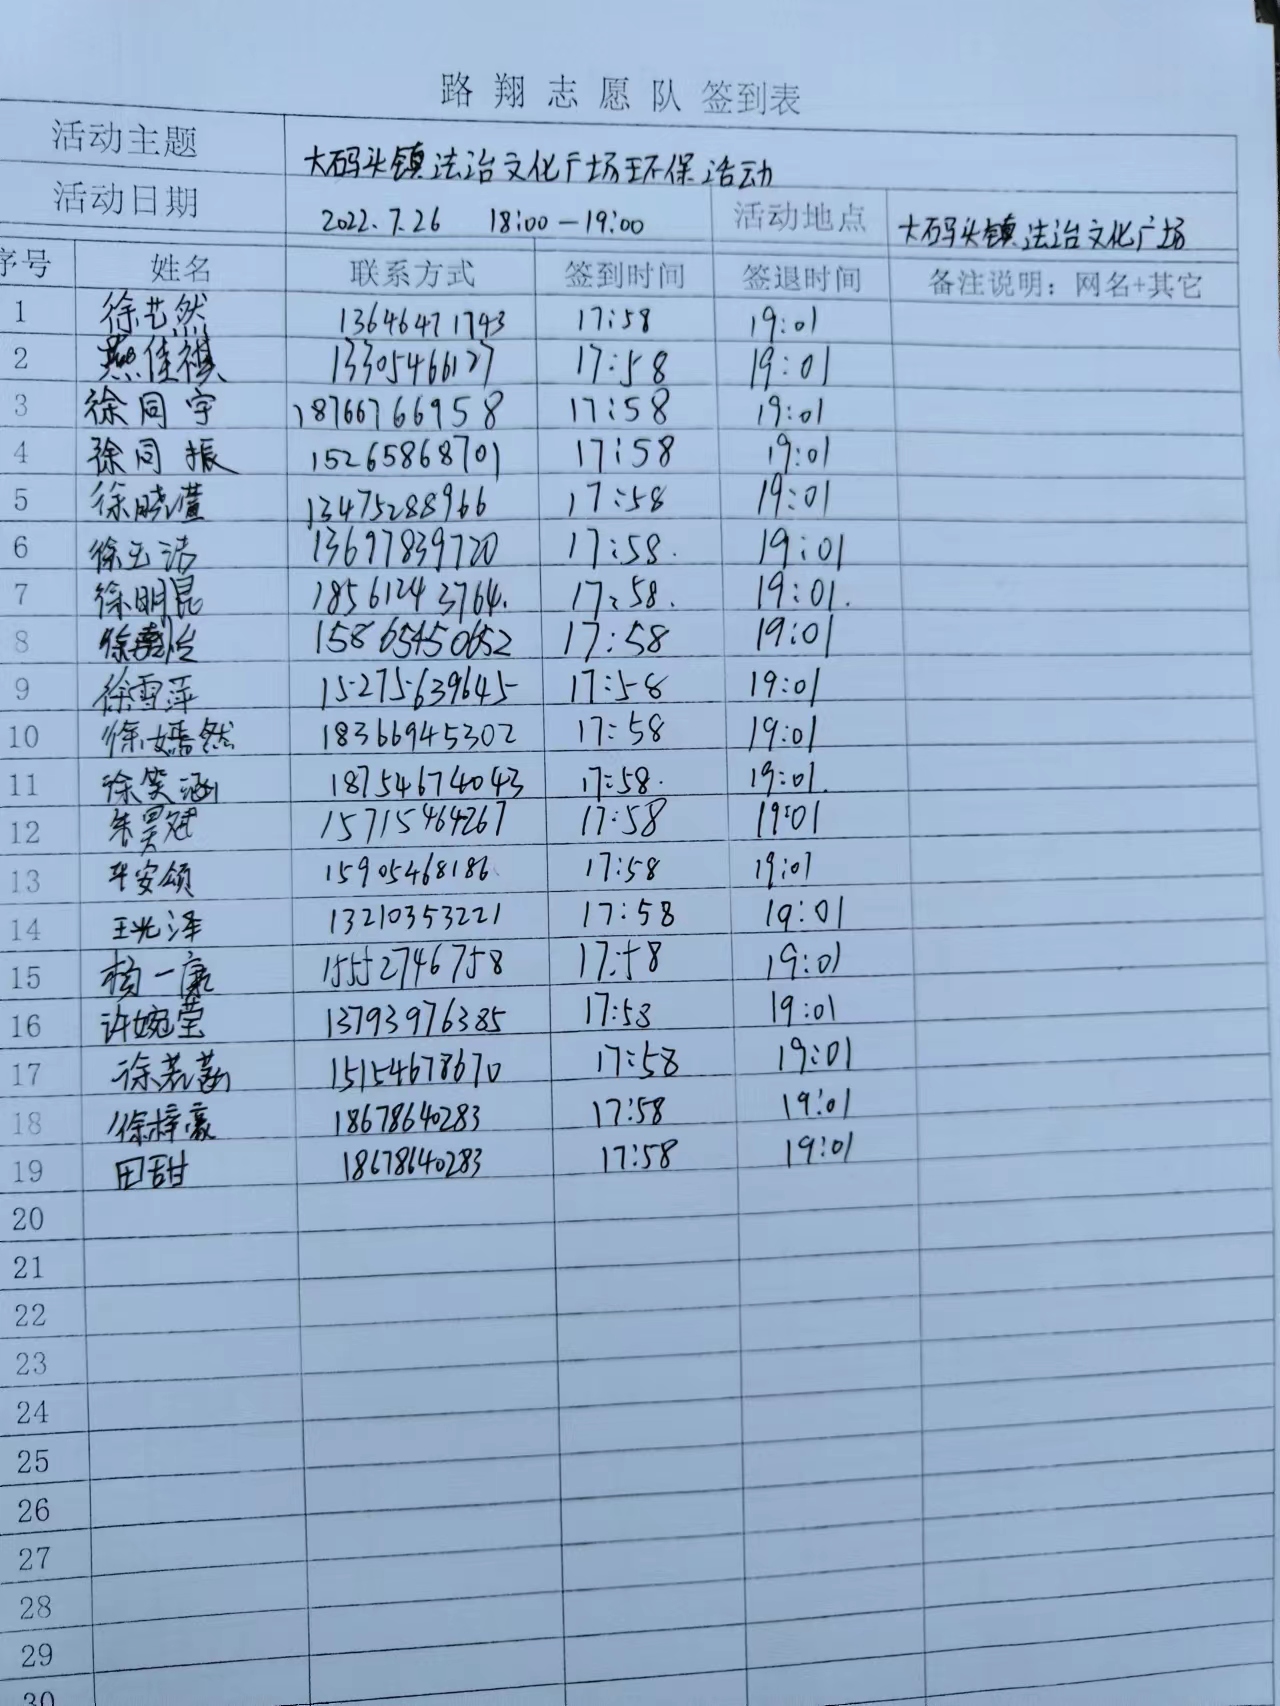 路翔志愿队 签到表
活动主题 大码头镇法治文化广场环保活动
活动日期 2022.7.26 18:00-19:00 活动地点 大码头镇法治文化广场
序号 姓名 联系方式 签到时间 签退时间 备注说明：网名+其它
1 徐艺然 13646471743 17:58 19:01
2 燕佳祺 13305466127 17:58 19:01
3 徐同宇 18766766958 17:58 19:01
4 徐同振 15265868701 17:58 19:01
5 徐晓潼 13475288966 17:58 19:01
6 徐玉洁 13697839720 17:58. 19:01
7 徐明昆 18561243764. 17:58. 19:01.
8 徐嘉怡 15865450652 17:58 19:01
9 徐雪萍 15275639645 17:58 19:01
10 徐嫣然 18366945302 17:58 19:01
11 徐笑涵 18754674043 17:58. 19:01.
12 朱昊斌 15715464267 17:58 19:01
13 平安颂 15905468186 17:58 19:01
14 王兆泽 13210353221 17:58 19:01
15 杨一康 15552746758 17:58 19:01
16 许婉莹 13793976385 17:58 19:01
17 徐若菡 15154678670 17:58 19:01
18 徐梓豪 18678640283 17:58 19:01
19 田甜 18678640283 17:58 19:01
20
21
22
23
24
25
26
27
28
29
30